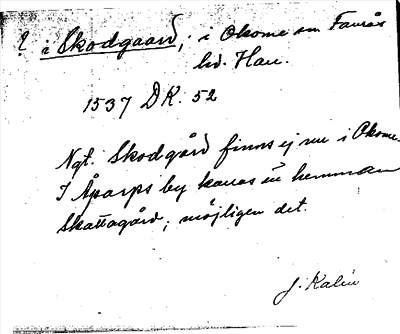 ? i Skodgaard, i Okome sn. Faurås
hd. Han.
1537 DK. 52
Ngt. Skodgård finns ej nu i Okome.
I Åparps by kallas ett hemman
Skattagård; möjligen det.
J. Kalén